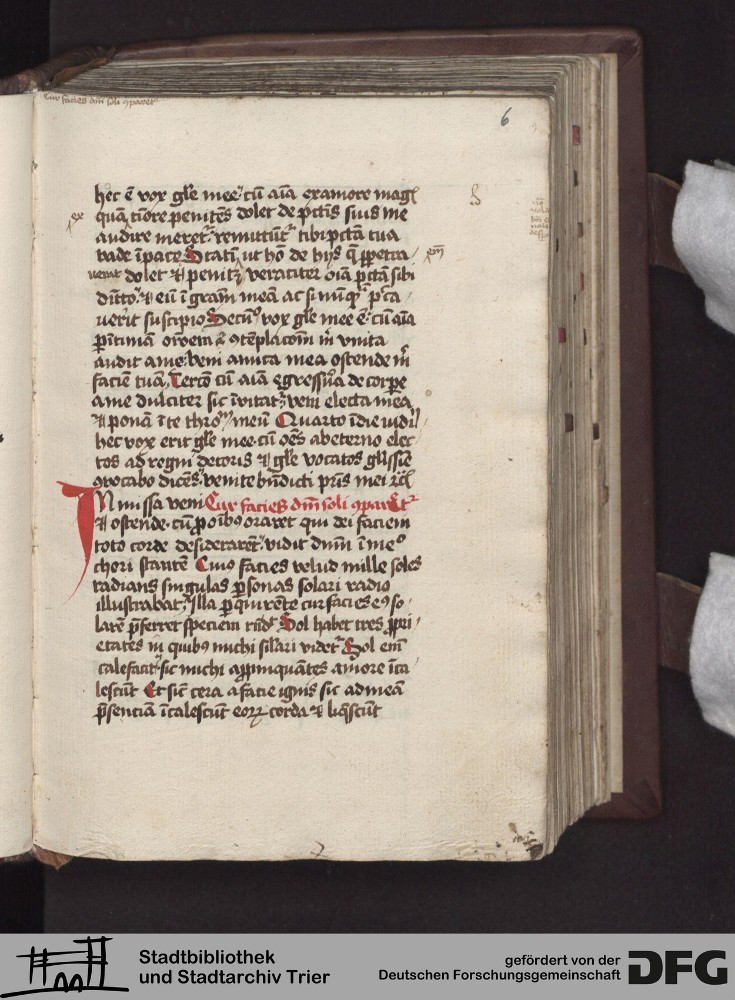 Cur facies dm̄ soli ꝯparet᷑
6
hec ē vox gl̄e mee· cū aīa ex amore mag
ex
quā timore penitēs dolet de pctīs suis me
audire meret᷑· remittūt᷑ tibi pctā tua
vade ī pace Statī ut hō de hijs q̄ ꝑpetra
em̄
uerit dolet ⁊ penitꝫ veraciter oīa pctā sibi
dītto· ⁊ eū ī grām meā ac si nūqͣ pcͨa
uerit suscipio Secūᵒ vox gl̄e mee ē· cū aīa
orōem ꝯtēplacōm m̄ vnita
audit a me· veni amica mea ostende m̄
faciē tuā, Tercō cū aīa egressūa de corꝑe
a me dulciter sic īvitat᷑· veni electa mea
⁊ ponā ī te thronū meū Quarto ī die iudi
hec vox erit gl̄e mee· cū oēs ab eterno elec
tos ad regnū decoris ⁊ gl̄e vocatos gl̄issīe
ꝯvocabo dicēs· venite bn̄dicti pr̄is mei
IN missa veni Cur facies dm̄ soli ꝯparet᷑
⁊ ostende· cū ꝓ oībꝰ oraret qui dei faciem
toto corde desiderarēt· vidit dnm̄ ī meᵒ
chori stantē Cuiꝰ facies velud mille soles
radians singulas ꝑsonas solari radio
illustrabat· Illa ꝑquirēte cur facies eꝰ so
larē p̄ferret speciem rn̄dᵗ Sol habet tres ꝓpri
etates in quibꝰ michi sīlari videt᷑ Sol em̄
calefacit· sic michi appīnquātes amore īca
lescūt Et sic cera a facie ignis sic ad meā
p̄senciā īcalescūt eoꝝ corda ⁊ liq̄scūt
Stadtbibliothek
und Stadtarchiv Trier
gefördert von der
Deutschen Forschungsgemeinschaft
DFG